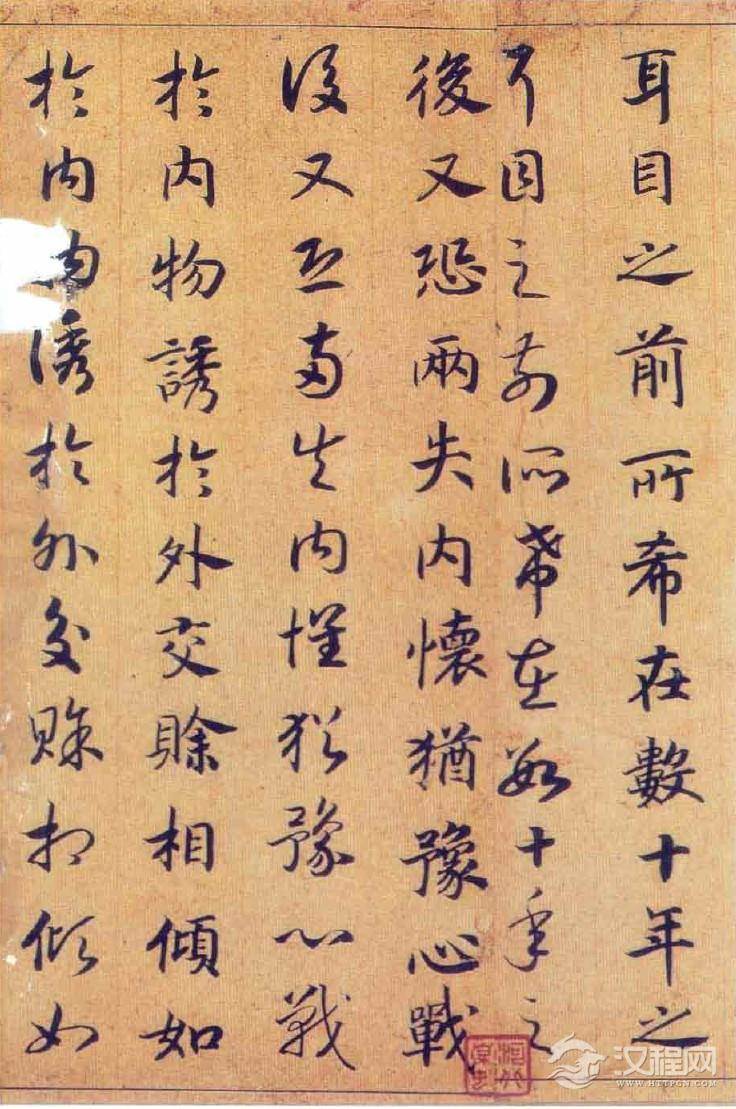 耳目之前所希在數十年之
耳目之前所希在數十年之
後又恐兩失內懷猶豫心戰
後又恐兩失內懷猶豫心戰
於內物誘於外交賒相傾如
於內物誘於外交賒相傾如
汉程网
WWW.HTTPCN.COM